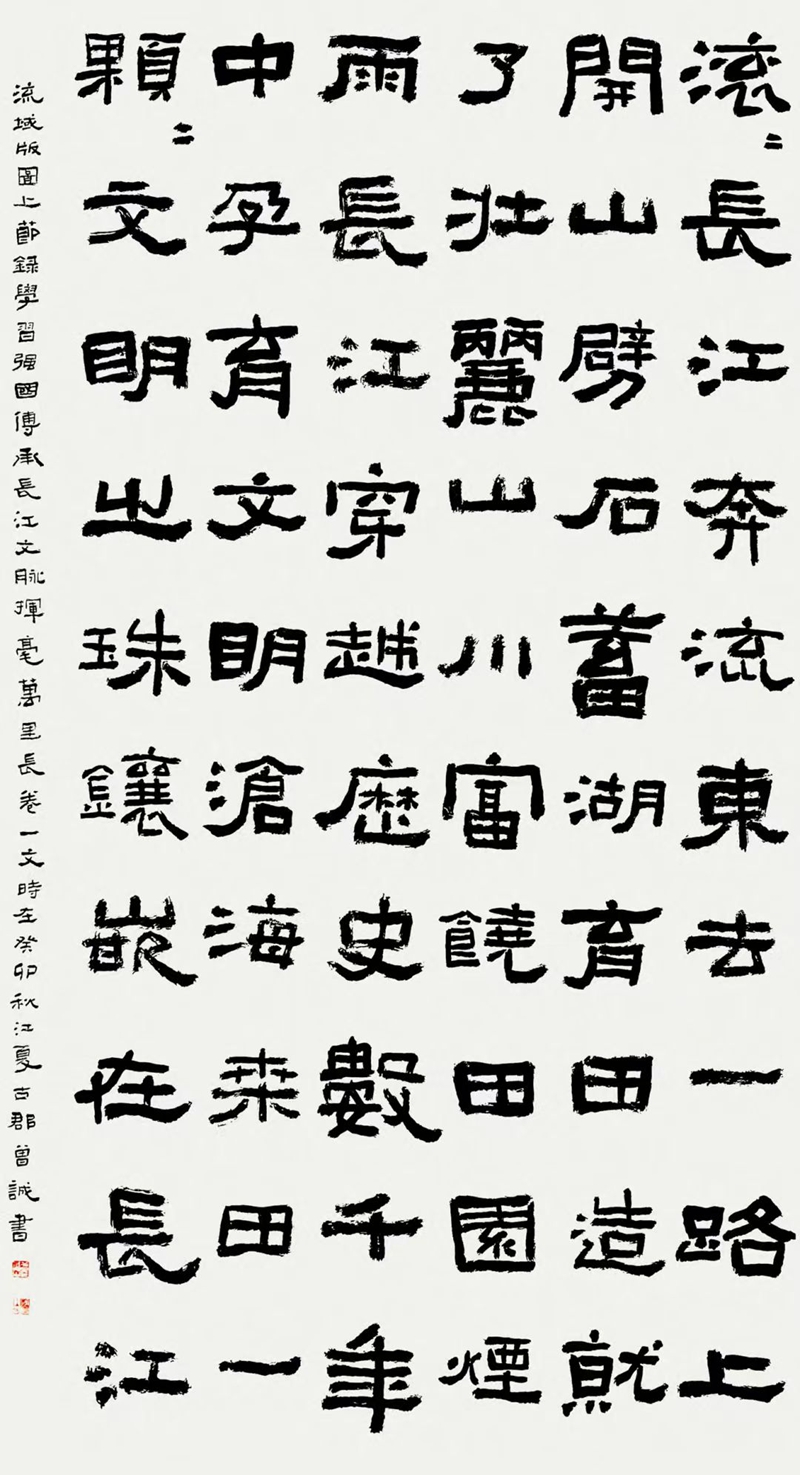 滚〻長江奔流東去一路上
開山劈石蓄湖育田造就
了壯麗山川富饒田園煙
雨長江穿越歷史數千年
中孕育文明滄海桒田一
顆〻文明之珠鑲嵌在長江
流域版圖上節録學習强國傳承長江文脉揮毫萬里長卷一文時在癸卯秋江夏古郡曾誠書